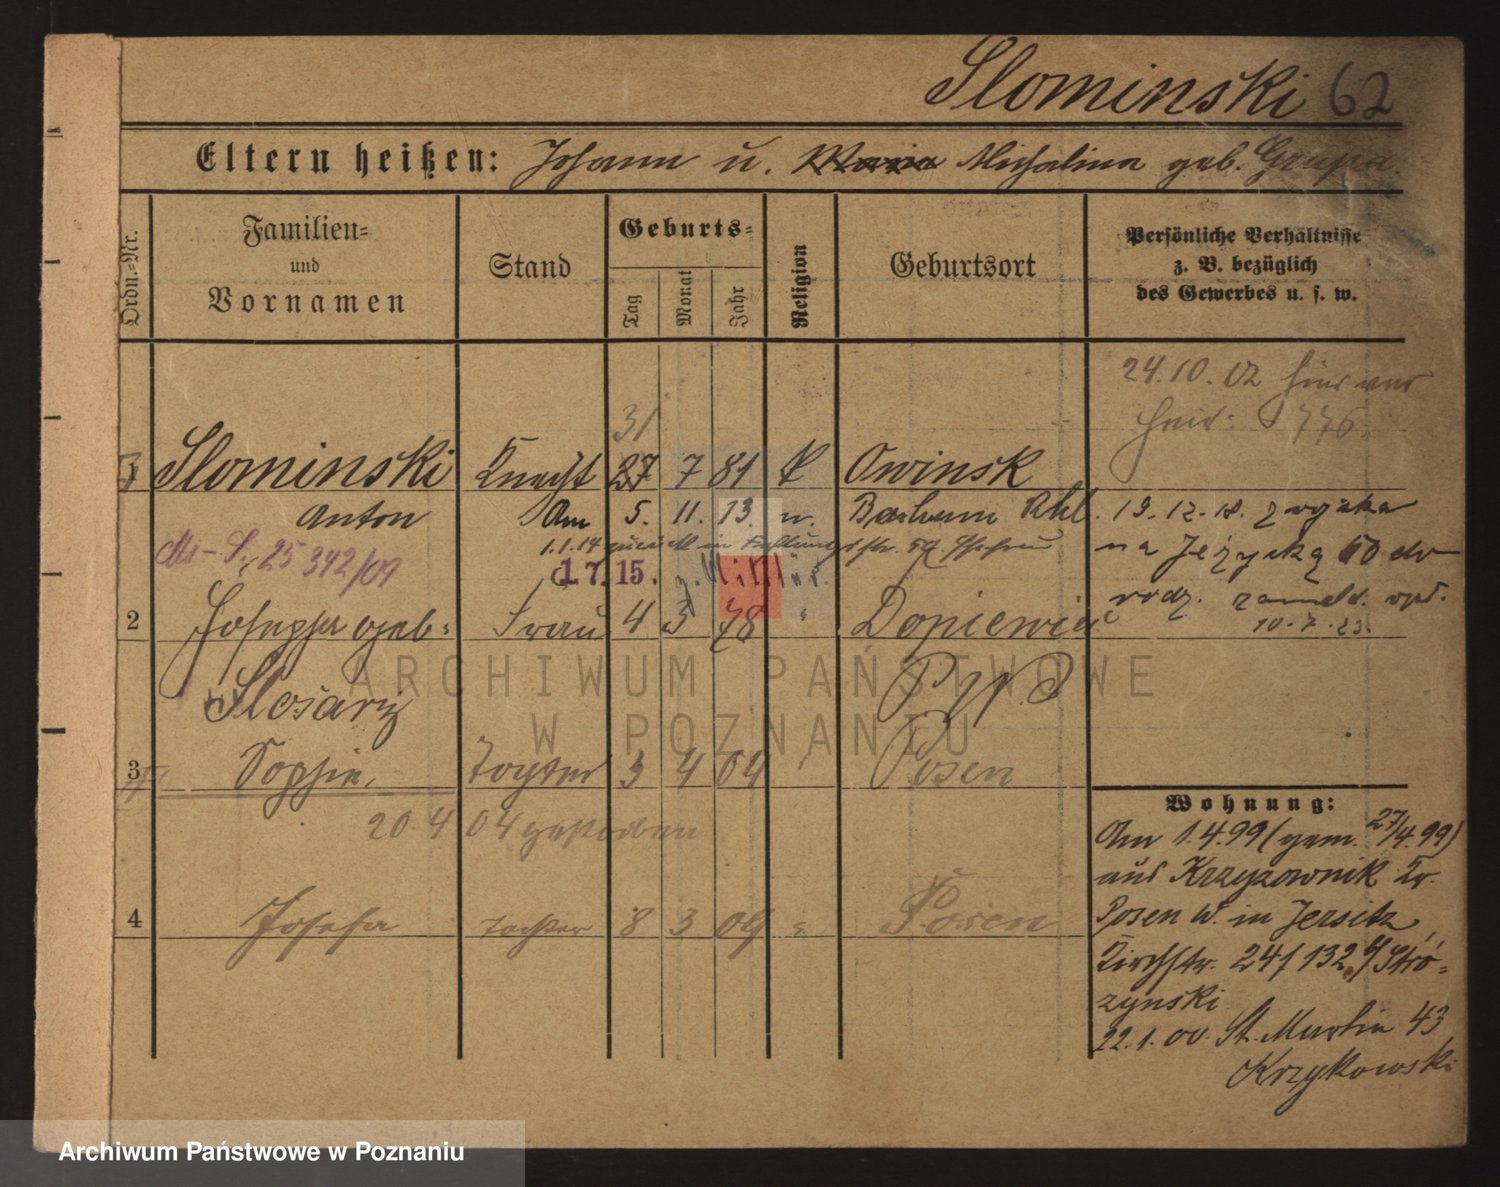 Slominski 62
Eltern heißen: Johann u. Maria Michalina geb. Grupa
Ordn.-Nr.
Familien-
und
Vornamen
Stand
Geburts-
Tag
Monat
Jahr
Religion
Geburtsort
Persönliche Verhältnisse
z. B. bezüglich
des Gewerbes u. s. w.
24.10.02
776
31
1 Slominski Knecht 27 7 81 k Owinsk
Anton Am 5. 11. 13. n. Bochum Abl. 19.12.18.
1.1.14 zurück in na Jeżycką
Mi-S, 25 342/09
1. 7. 15. z. Militär.
2 Josepha geb: Frau 4 3 78 " Dopiewiec
rodz. 10.7.23.
Slosarz
3 Sophie, Tochter 3 4 04 " Posen
20.4 04 gestorben
4 Josefa Tochter 8 3 09 " Posen
Wohnung:
Am 1.4.99 (gem. 27/4.99)
aus Krzyzownik Kr.
Posen W. in Jersitz,
Kirchstr. 24/132 b/ Stró-
zynski
22.1.00. St. Martin 43
Krzykowski
ARCHIWUM PAŃSTWOWE
W POZNANIU
Archiwum Państwowe w Poznaniu